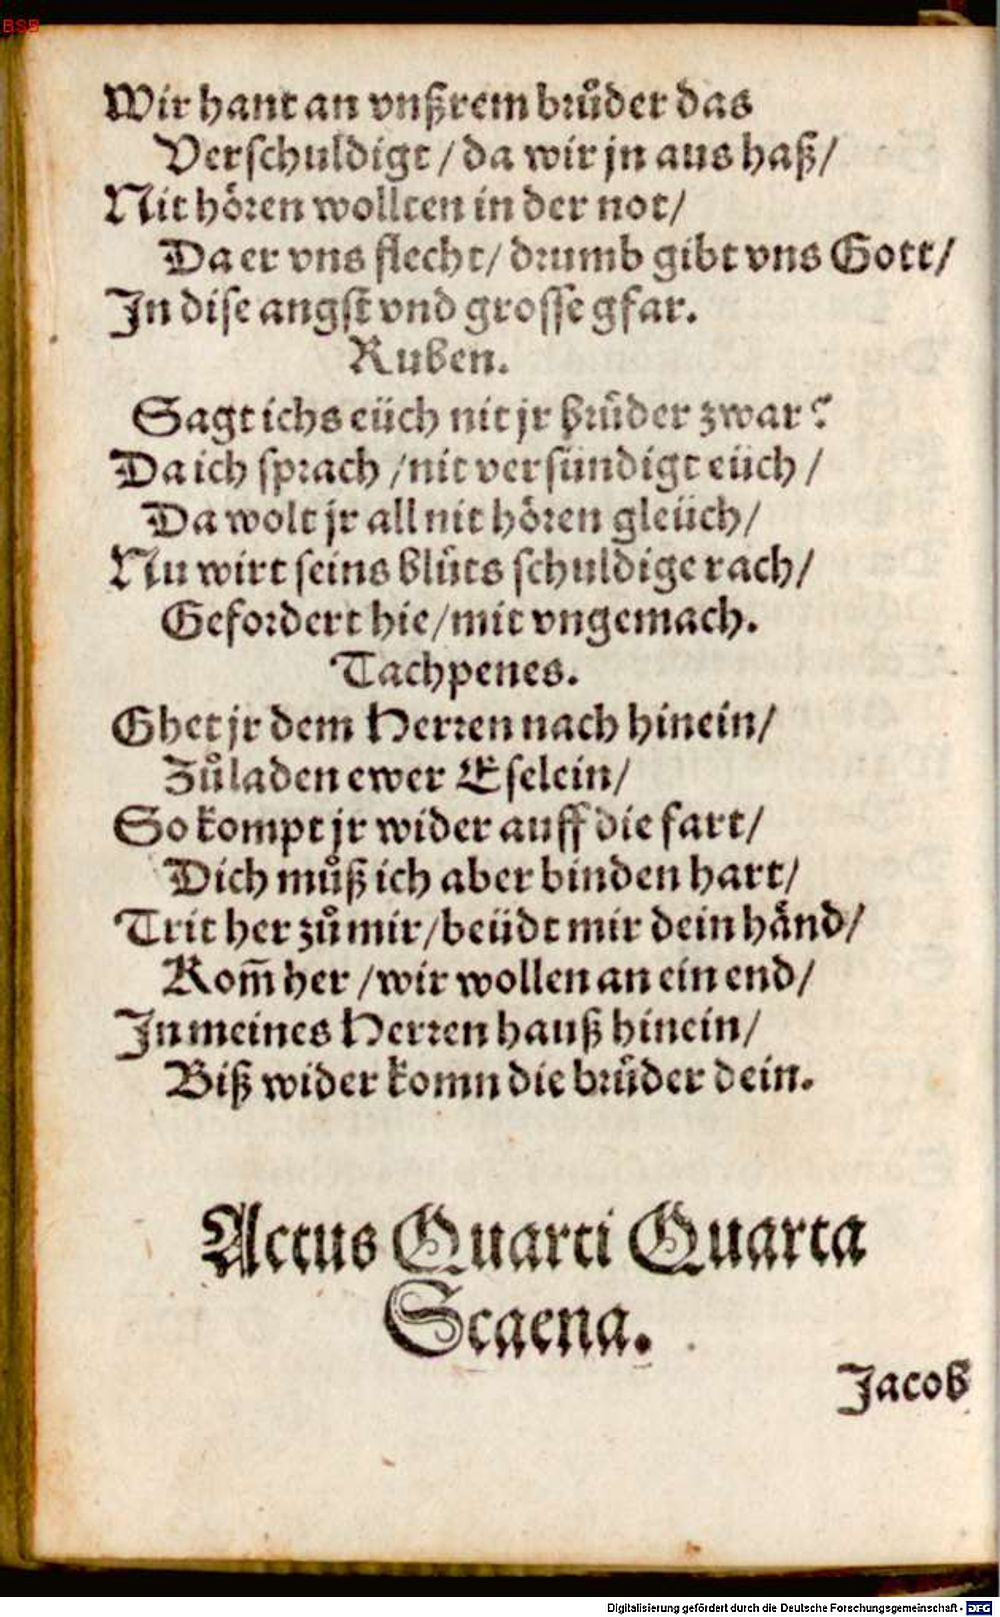 BSB
Wir hant an vnßrem bruͤder das
Verschuldigt / da wir jn aus haß /
Nit hoͤren wollten in der not /
Da er vns flecht / drumb gibt vns Gott /
In dise angst vnd grosse gfar.
Ruben.
Sagt ichs eüch nit jr bruͤder zwar?
Da ich sprach / nit versündigt eüch /
Da wolt jr all nit hoͤren gleüch /
Nu wirt seins bluͤts schuldige rach /
Gefordert hie / mit vngemach.
Tachpenes.
Ghet jr dem Herren nach hinein /
Zuͦladen ewer Eselein /
So kompt jr wider auff die fart /
Dich muͦß ich aber binden hart /
Trit her zuͦ mir / beüdt mir dein haͤnd /
Kom̃ her / wir wollen an ein end /
In meines Herren hauß hinein /
Biß wider komn die bruͤder dein.
Actus Quarti Quarta
Scaena.
Jacob
Digitalisierung gefördert durch die Deutsche Forschungsgemeinschaft - DFG